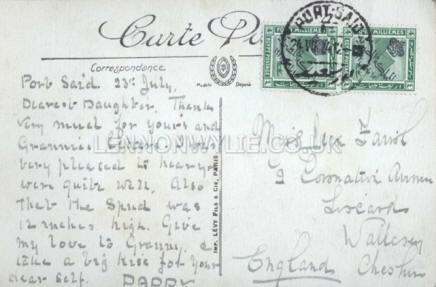 Carte
Correspondence
Port Said 23rd July.
Dearest Daughter. Thanks
very much for yours and
Grannies
very pleased to hear you
were quite well. Also
that the Spud was
12 inches high. Give
my love to Granny. &
take a big kiss for your
dear self. DADDY
IMP. LÉVY FILS & Cie, PARIS
PORT-SAID
MILLIEMES
MILLIEMES
Miss
9 Coronation Avenue
Liscard
Wallasey
England Cheshire
LENNONWYLIE.CO.UK